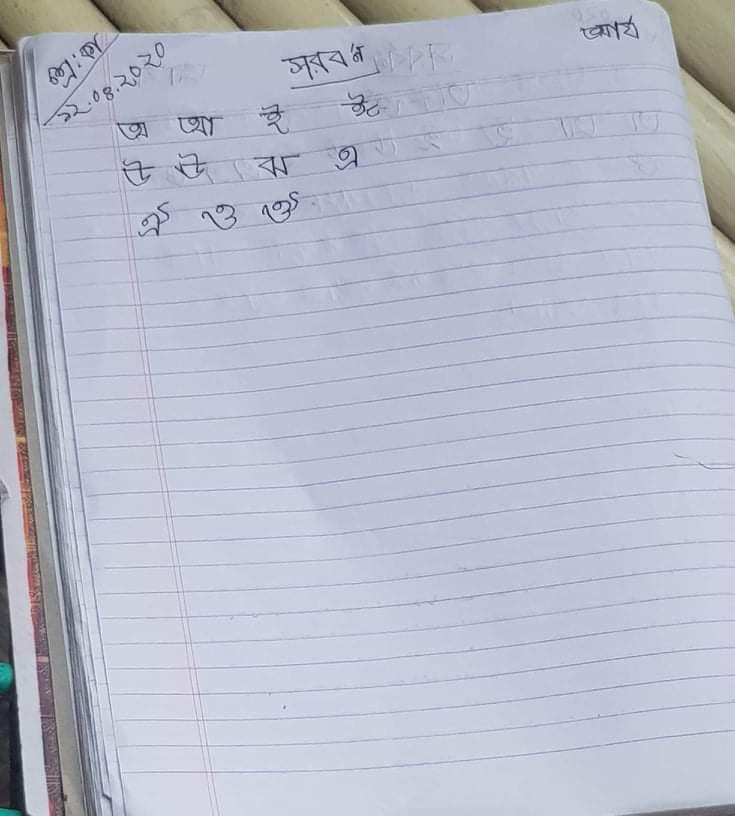 শ্রে: কা
১২.০৪.২০২০
সরবর্ন
আর্য
অ আ ই ঈ
উ ঊ ঋ এ
ঐ ও ঔ